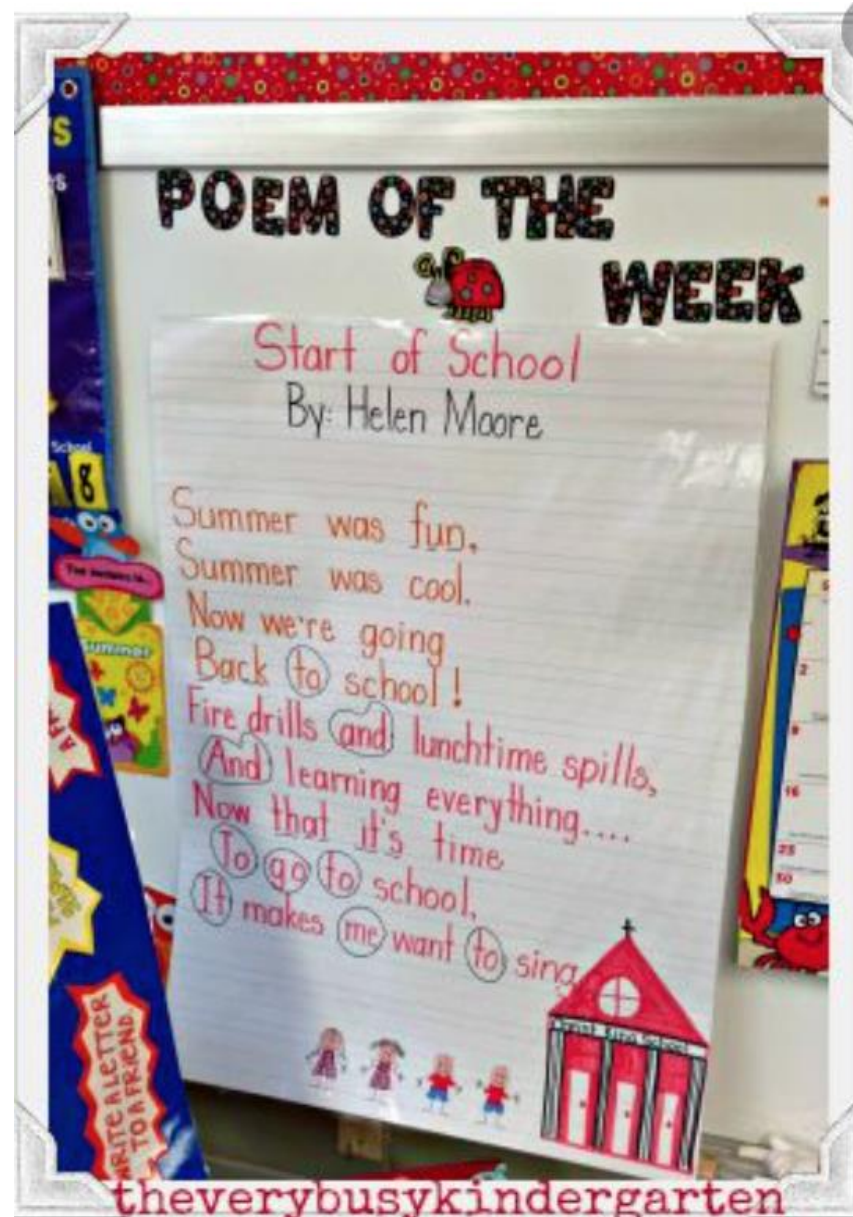 POEM OF THE
WEEK
Start of School
By: Helen Moore
Summer was fun,
Summer was cool.
Now we're going
Back to school!
Fire drills and lunchtime spills,
And learning everything....
Now that it's time
To go to school,
It makes me want to sing
Christ King School
School
8
Summer
WRITE A LETTER
TO A FRIEND
2
9
16
23
30
theverybusykindergarten